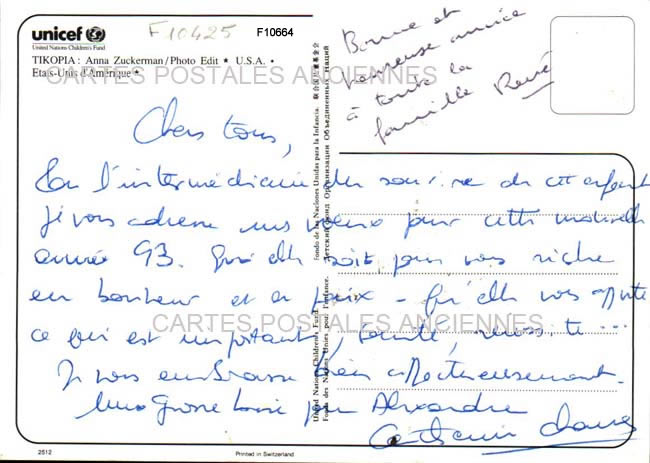 F10425
F10664
unicef
United Nations Children's Fund
TIKOPIA : Anna Zuckerman/Photo Edit * U.S.A. •
Etats-Unis d'Amérique *
CARTES POSTALES ANCIENNES
Bonne et
heureuse année
à toute la
famille René
Chers tous,
Par l'intermédiaire du sourire de cet enfant
je vous adresse mes voeux pour cette nouvelle
année 93. Qu'elle soit pour vous riche
en bonheur et en paix - Qu'elle vous apporte
ce qui est important, santé, réussite ...
CARTES POSTALES ANCIENNES
Je vous embrasse bien affectueusement.
Une grosse bise pour Alexandre
United Nations Children's Fund
Fonds des Nations Unies pour l'enfance.
Fondo de las Naciones Unidas para la Infancia.
Детский Фонд Организации Объединенных Наций
联合国儿童基金会
2512
Printed in Switzerland